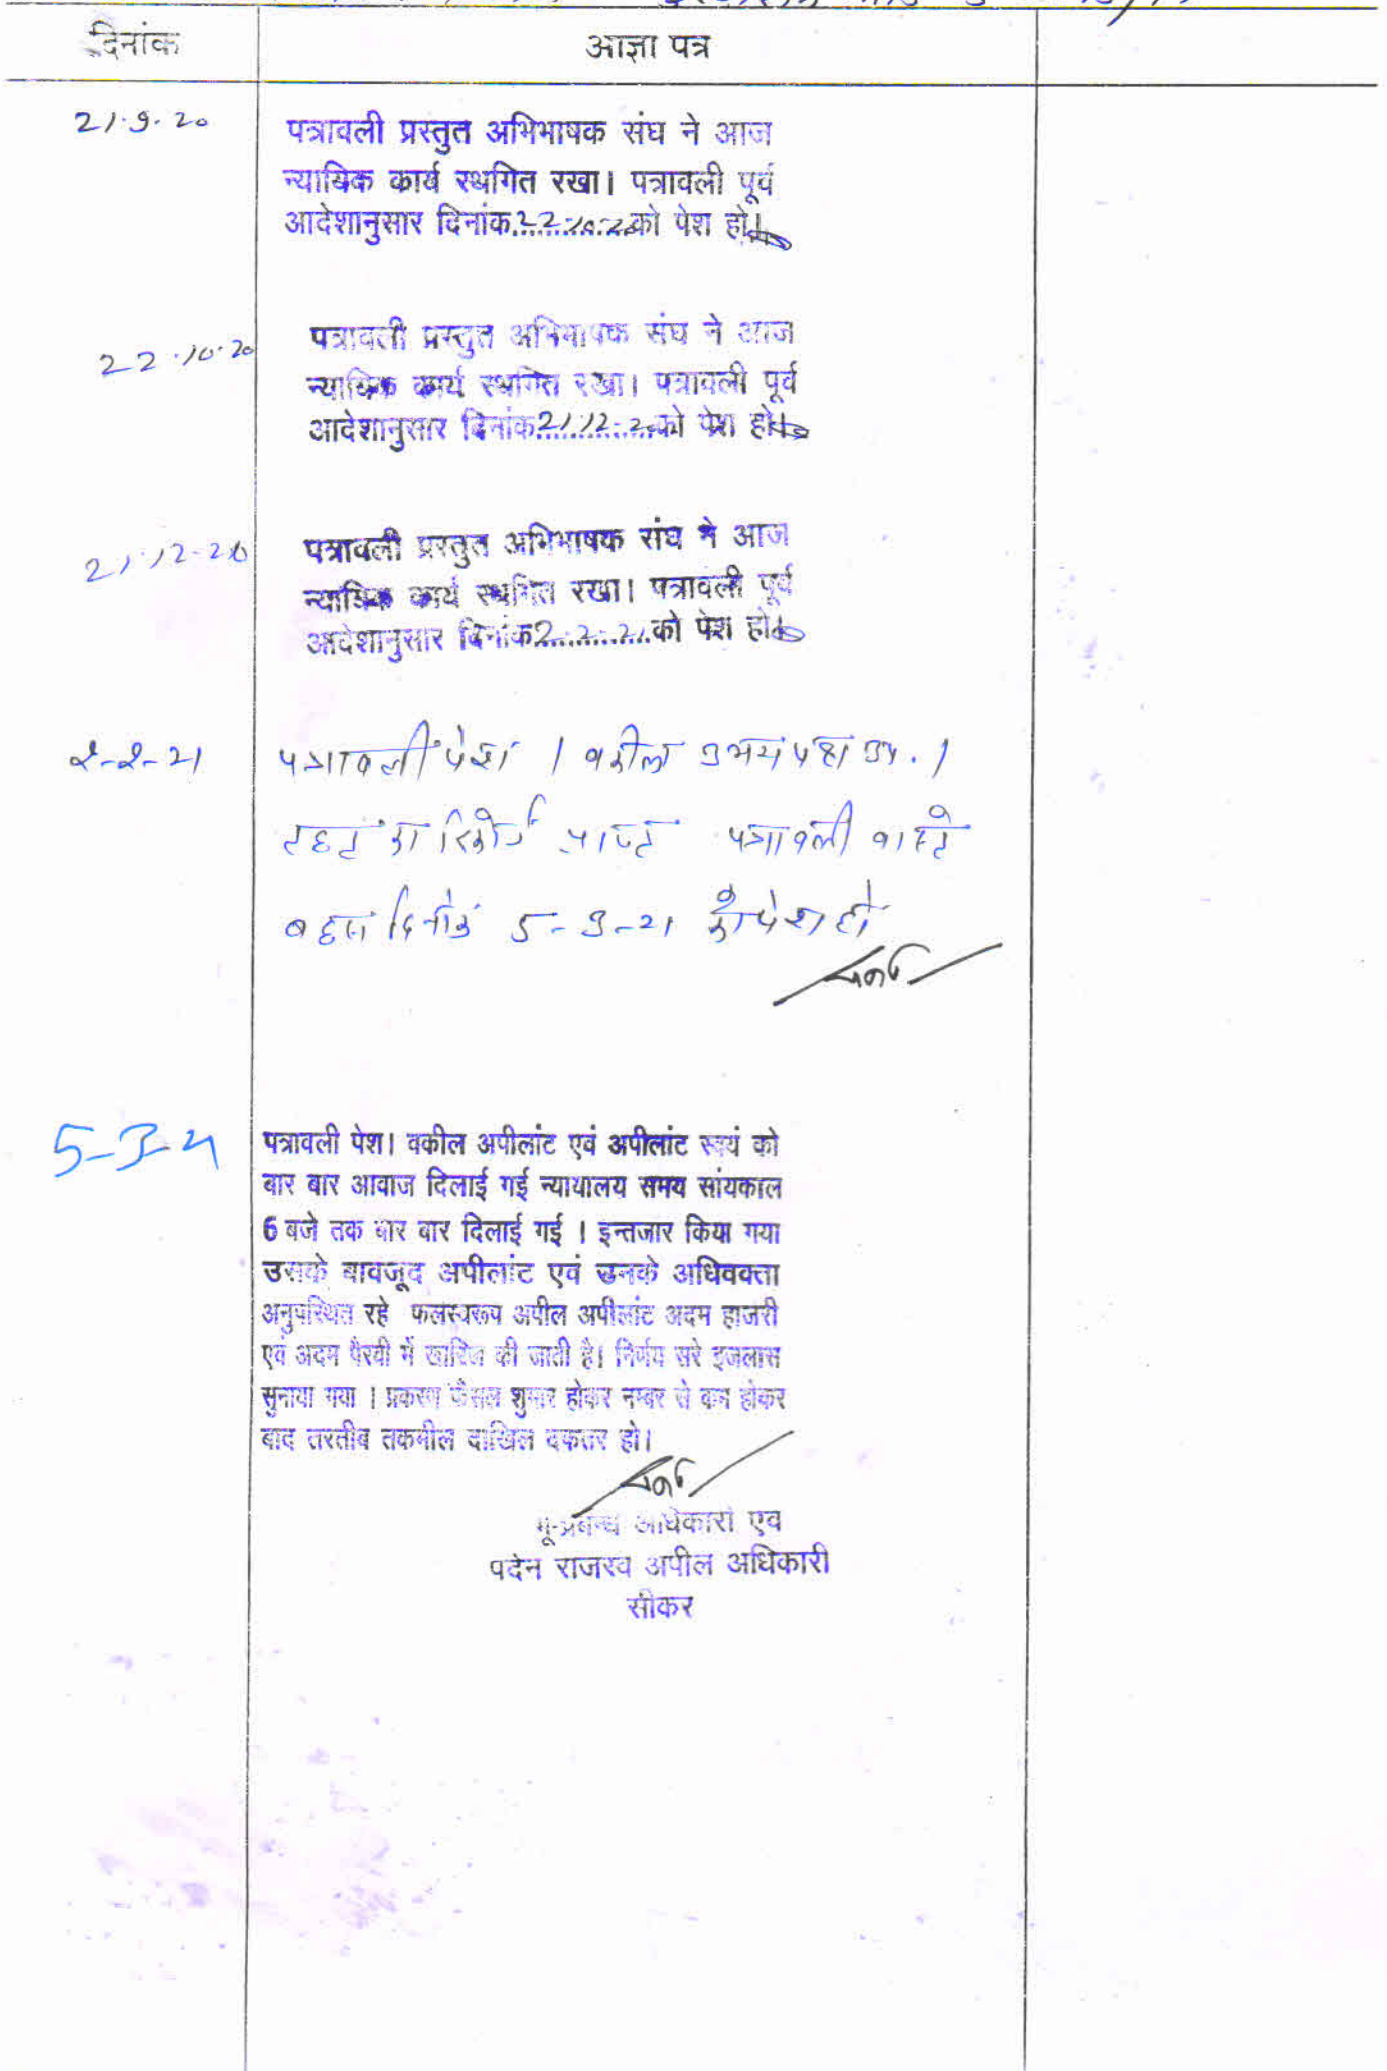 दिनांक
आज्ञा पत्र
21.9.20
पत्रावली प्रस्तुत अभिभाषक संघ ने आज
न्यायिक कार्य स्थगित रखा। पत्रावली पूर्व
आदेशानुसार दिनांक 22.10.20 को पेश हो।
22.10.20
पत्रावली प्रस्तुत अभिभाषक संघ ने आज
न्यायिक कार्य स्थगित रखा। पत्रावली पूर्व
आदेशानुसार दिनांक 21.12.20 को पेश हो।
21.12.20
पत्रावली प्रस्तुत अभिभाषक संघ ने आज
न्यायिक कार्य स्थगित रखा। पत्रावली पूर्व
आदेशानुसार दिनांक 2.2.21 को पेश हो।
2-2-21
पत्रावली पेश। वकील उभय पक्ष उप.।
तहत का रिकोर्ड प्राप्त पत्रावली वास्ते
बहस दिनांक 5-3-21 को पेश हो
5-3-21
पत्रावली पेश। वकील अपीलांट एवं अपीलांट स्वयं को
बार बार आवाज दिलाई गई न्यायालय समय सांयकाल
6 बजे तक बार बार दिलाई गई । इन्तजार किया गया
उसके बावजूद अपीलांट एवं उनके अधिवक्ता
अनुपस्थित रहे फलस्वरूप अपील अपीलांट अदम हाजरी
एवं अदम पैरवी में खारिज की जाती है। निर्णय सरे इजलास
सुनाया गया । प्रकरण फैसल शुमार होकर नम्बर से कम होकर
बाद तरतीब तकमील दाखिल दफतर हो।
भू-प्रबन्ध अधिकारी एवं
पदेन राजस्व अपील अधिकारी
सीकर